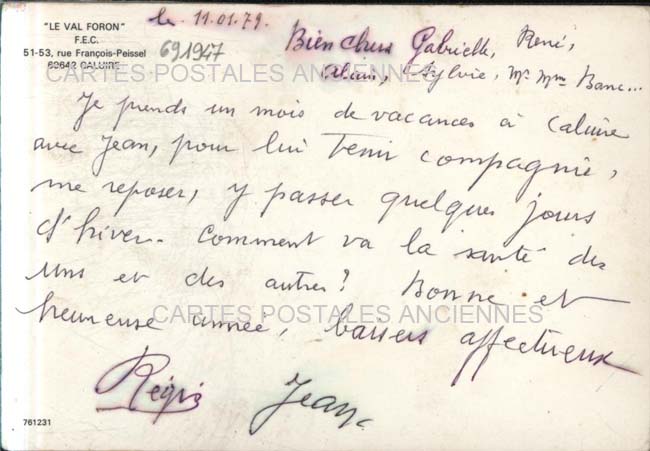 "LE VAL FORON"
F.E.C.
51-53, rue François-Peissel
69643 CALUIRE
691947
le 11.01.79.
Bien chers Gabrielle, René,
Alain, Sylvie, Mr Mme Banc...
CARTES POSTALES ANCIENNES
Je prends un mois de vacances à Caluire
avec Jean, pour lui tenir compagnie,
me reposer, y passer quelques jours
d'hiver. Comment va la santé des
uns et des autres? Bonne et
heureuse année, baisers affectueux
CARTES POSTALES ANCIENNES
Régis Jean
761231